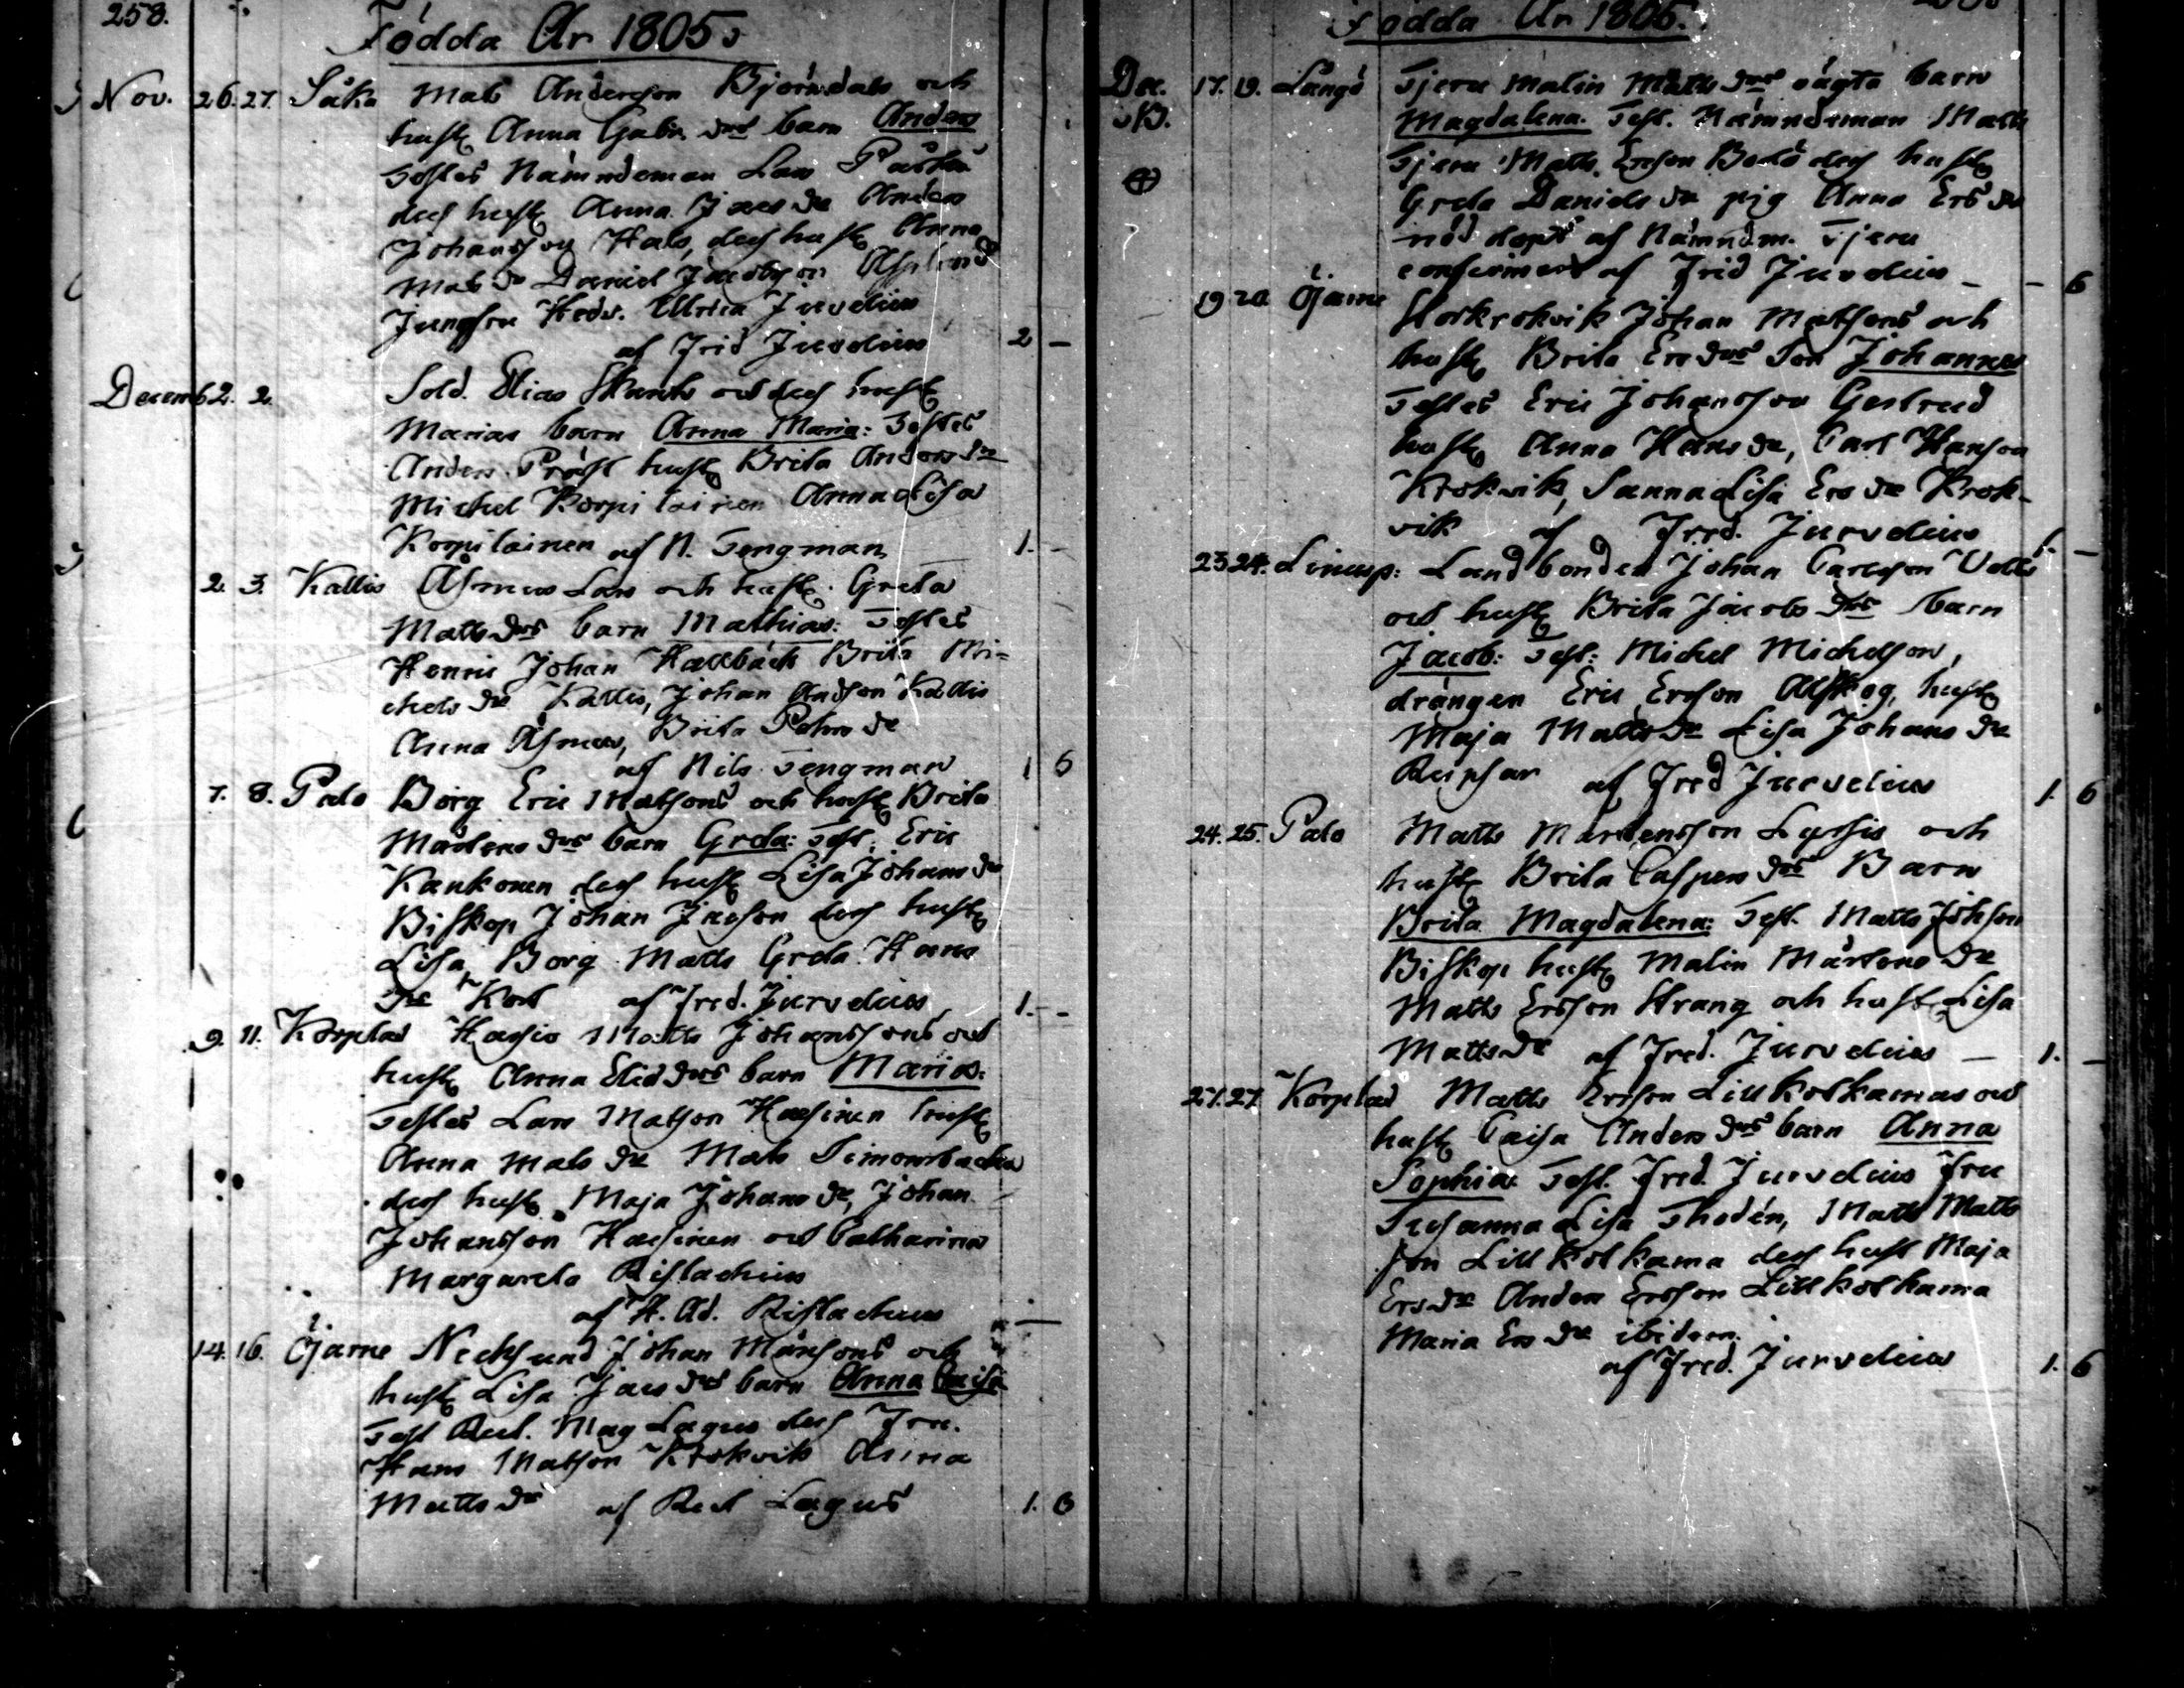 258.
Födda År 1805.
Nov. 26. 27. Såka Mats Andersson Björndals och
hust Anna Gabr. drs barn Anders
Testes Nämndeman Lars Påskis
des hust Anna Jacs dr Anders
Johansson Hals, des hust Anna
Mats dr Daniel Jacobsson Asplund
Jungfru Hedv. Ullrica Jurvelius
af Frid Jurvelius 2 -
Decemb 2. 2. Sold. Elias Skants och des hust
Marias barn Anna Maria: Testes
Anders Präst hust Brita Anders dr
Michel Korpilainen Anna Lisa
Korpilainen af N. Tengman 1. -
2. 3. Kallis Åsmus Lars och hust. Greta
Matts drs barn Mathias: Testes
Henric Johan Hallbäck Brita Mi=
chels dr Kallis, Johan Andson Kallis
Anna Åsmus, Brita Pehrs dr
af Nils Tengman 1 6
7. 8. Palo Borg Eric Matsons och hust Brita
Mårtens drs barn Greta: Test: Eric
Kankonen des hust Lisa Johans dr
Biskop Johan Jacson des hust
Lisa, Borg Matts Greta Hans
dr Kort af Fred. Jurvelius 1. -
9. 11. Korplax Hasio Matts Johanssons och
hust Anna Elis drs barn Maria:
Testes Lars Matson Hasinen hust
Anna Mats dr Mats Simonsbacka
des hust Maja Johans dr, Johan
Johansson Hasinen och Catharina
Margareta Rislachius
af H. Ad. Rislachius -
14. 16. Öjarne Necksund Johan Månsons och
hust Lisa Jacs drs barn Anna Caisa
Test Rect. Mag Lagus des Fru.
Hans Matson Krokvik Anna
Matts dr af Rect Lagus 1. 6
Födda År 1805.
Dec. 17. 19. Långö Tjeru Malin Matts drs oägta barn
Magdalena. Test. Nämndeman Matts
Tjeru Matts Ersson Bodö des hust
Greta Daniels dr pig Anna Ers dr
nöd döpt af Nämndm. Tjeru
confirmerd af Frid Jurvelius - - 6
19 20 Öjarne Storkrokvik Johan Matsons och
hust Brita Ers drs Son Johannes
Testes Eric Johansson Gestrud
hust Anna Hans dr, Carl Hanson
Krokvik, Sanna Lisa Ers dr Krok-
vik af Fred. Jurvelius 1. -
23 24. Linusp: Landbonden Johan Carlsson Volls
och hust Brita Jacobs drs barn
Jacob: Test: Michel Michelsson,
drängen Eric Ersson Alskog, hust
Maja Matts dr Lisa Johans dr
Ripsar af Fred Jurvelius 1. 6
24. 25. Palo Matts Mårtensson Lyssis och
hust Brita Caspers drs Barn
Brita Magdalena: Test. Matts Johson
Biskop hust Malin Mårtens dr
Matts Ersson Strang och hust Lisa
Matts dr af Fred. Jurvelius - 1. -
27. 27. Korplax Matts Ersson Lillkolkamas och
hust Caisa Anders drs barn Anna
Sophia Test. Fred. Jurvelius Fru
Susanna Lisa Thodén, Matts Matts
son Lillkolkama des hust Maja
Ers dr Anders Ersson Lillkolkama
Maria Ers dr ibidem.
af Fred. Jurvelius 1. 6